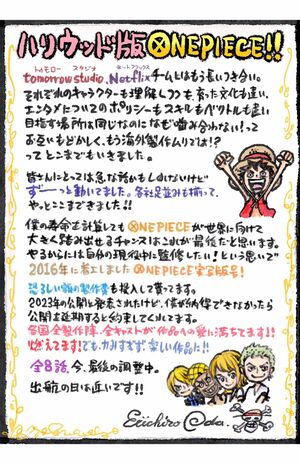 ハリウッド版ONEPIECE!!
トゥモロー スタジオ ネットフリックス
tomorrow studio,Netflixチームとはもう長いつき合い。
それぞれのキャラクターも理解しつつ、育った文化も違い、
エンタメについてのポリシーもスキルもベクトルも違い
目指す場所は同じなのになぜ噛み合わない!って
お互いもどかしく、もう海外製作ムリでは!?
ってとこまでもいきました。
皆さんにとっては急な話かもしれないけど
ずーっと動いてました。各社足並みも揃って、
やっとここまできました!!
僕の寿命を計算してもONEPIECEが世界に向けて
大きく踏み出せるチャンスはこれが最後だと思います。
やるからには自分の現役中に監修したい!という思いで
2016年に着工しましたONEPIECE実写版号!
恐ろしい額の製作費も投入して貰ってます。
2023年の公開と発表されたけど、僕が納得できなかったら
公開は延期すると約束してくれてます。
各国全製作陣、全キャストが作品への愛に満ちてます!!
燃えてます!でも力みすぎず、楽しい作品に!!
全8話、今、最後の調整中。
出航の日は近いです!!
Eiichiro Oda.